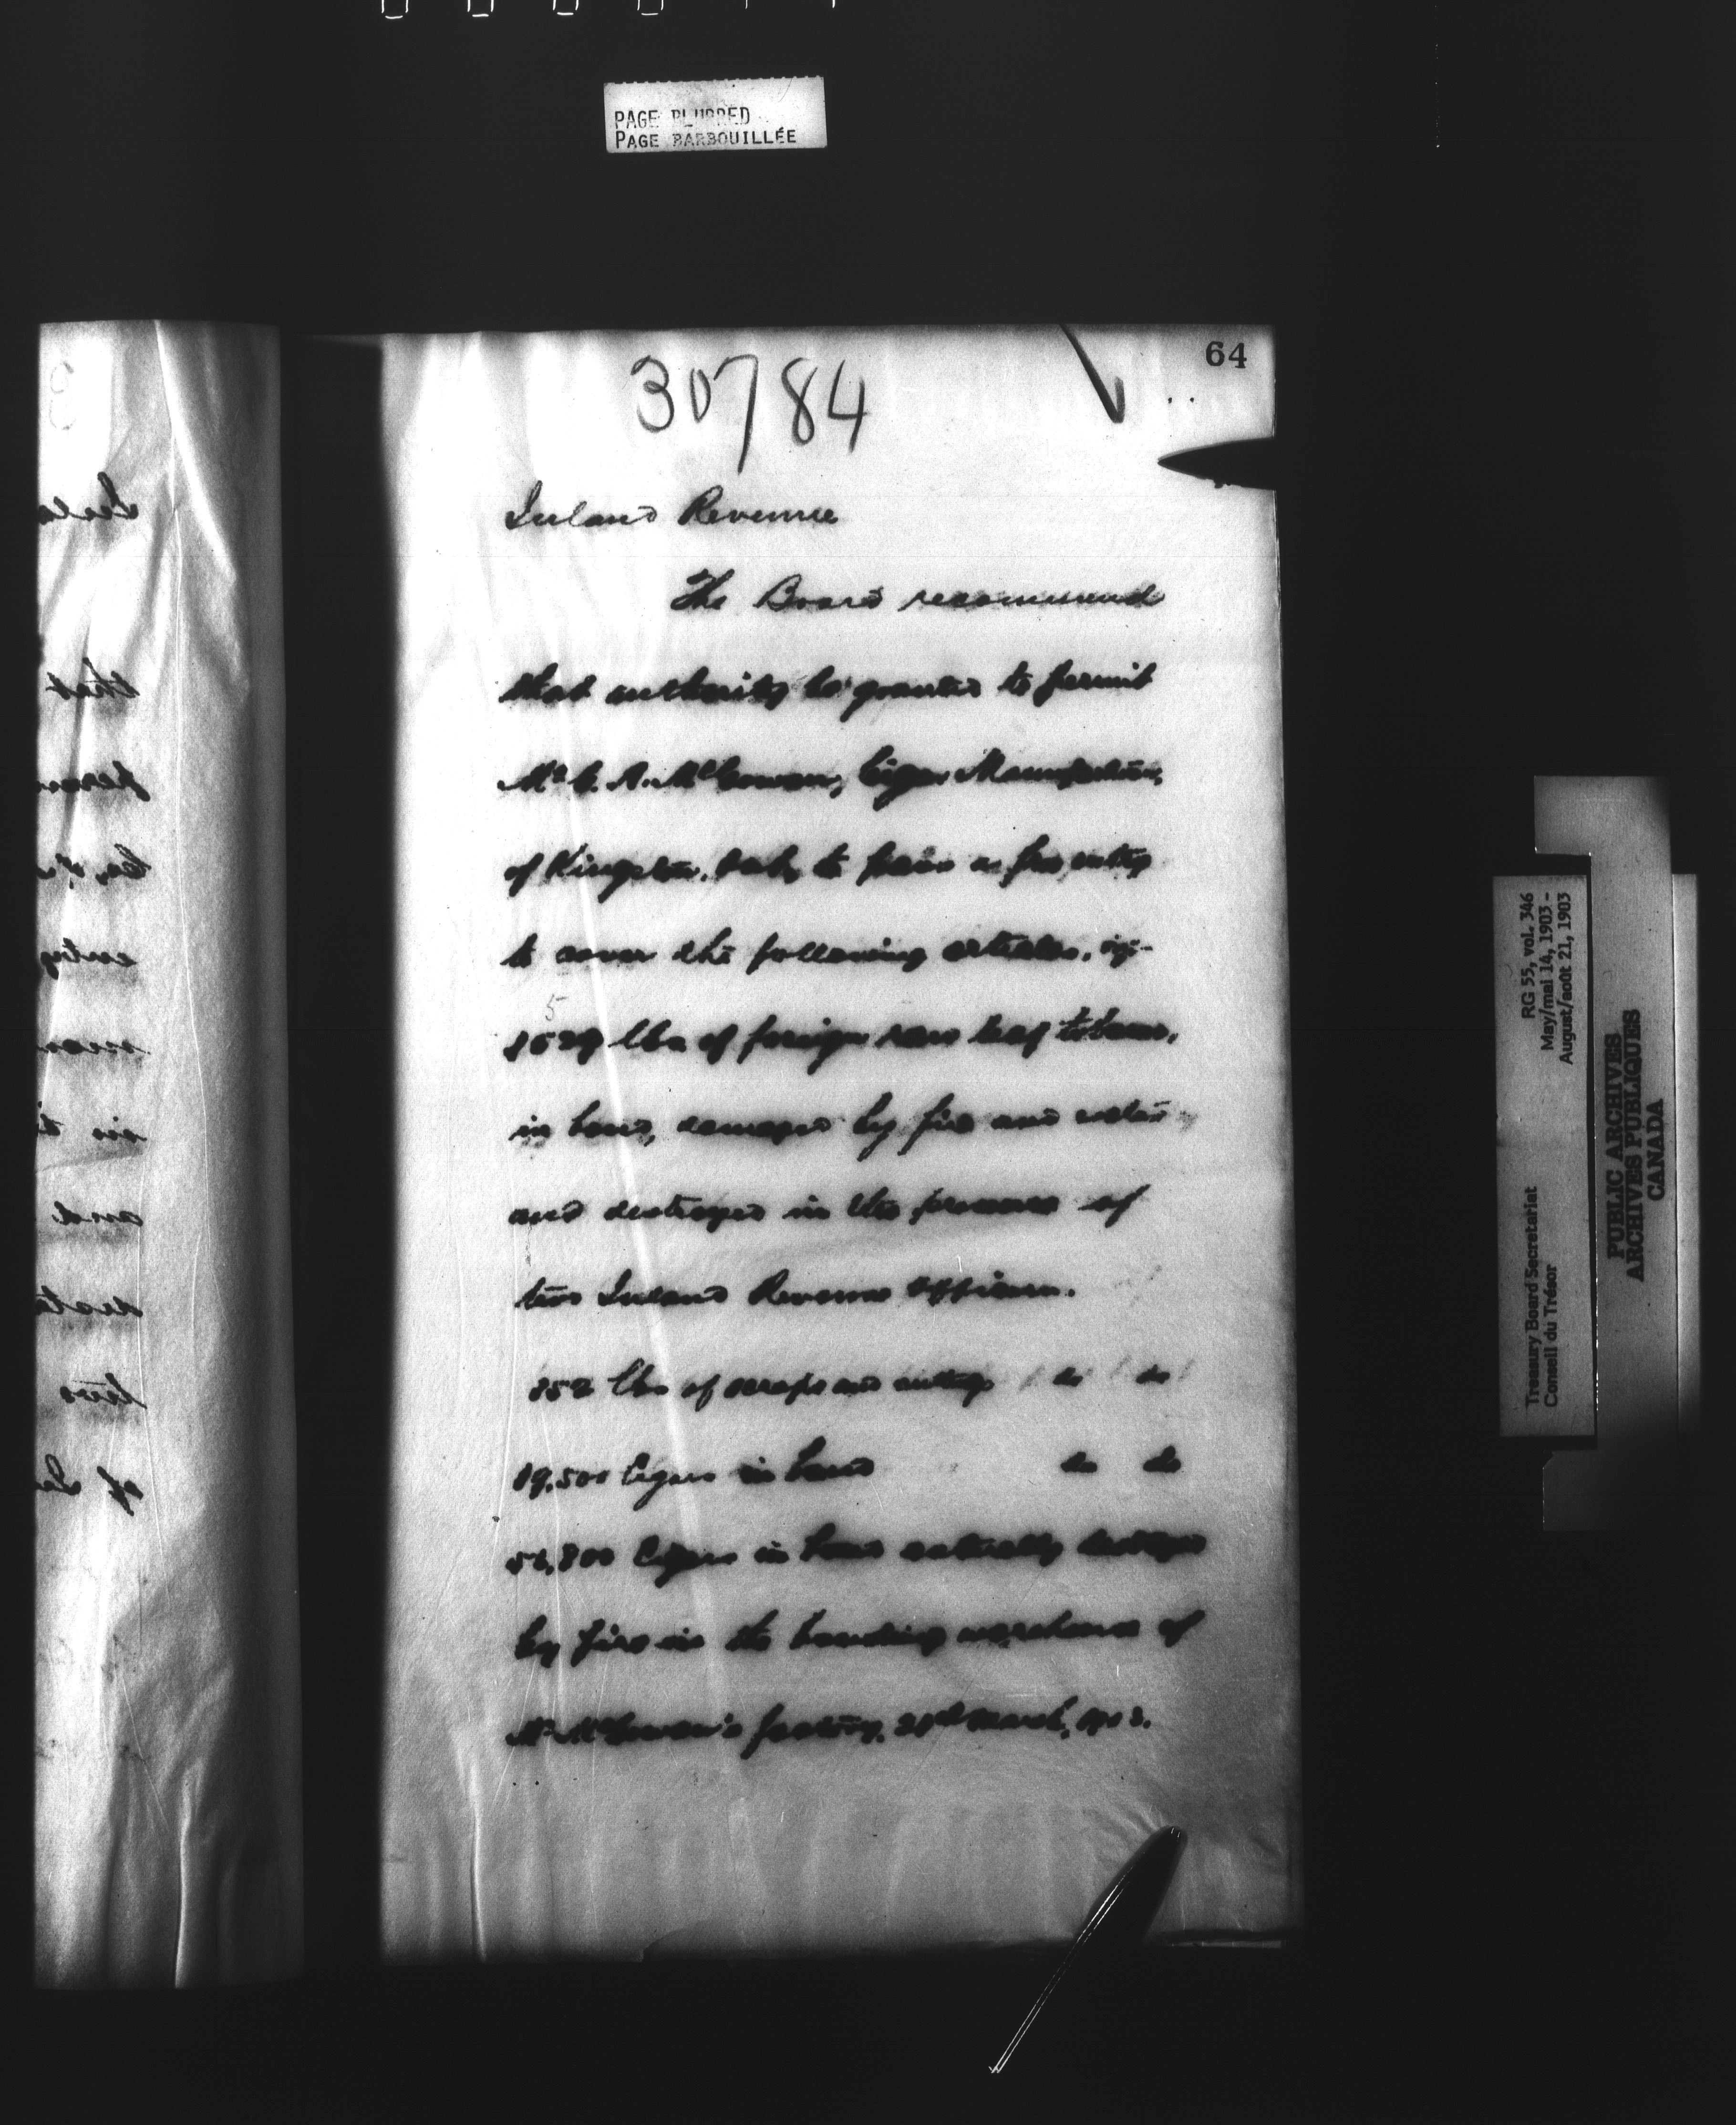 PAGE BLURRED
PAGE BARBOUILLÉE
64
30784
Inland Revenue
The Board recommend
that authority be granted to permit
Mr G. A. McGowan, Cigar Manufacturer,
of Kingston, Ont, to pass a free entry
to cover the following articles, viz:-
5
8529 lbs of foreign raw leaf tobacco,
in bond, damaged by fire and water
and destroyed in the presence of
two Inland Revenue Officers.
352 lbs of scraps and cuttings do do
19,500 Cigars in bond do do
56,800 Cigars in bond actually destroyed
by fire in the bonding warehouse of
Mr McGowan's factory, March, 1903.
RG 55, vol. 346
May/mai 14, 1903 -
August/août 21, 1903
Treasury Board Secretariat
Conseil du Trésor
PUBLIC ARCHIVES
ARCHIVES PUBLIQUES
CANADA